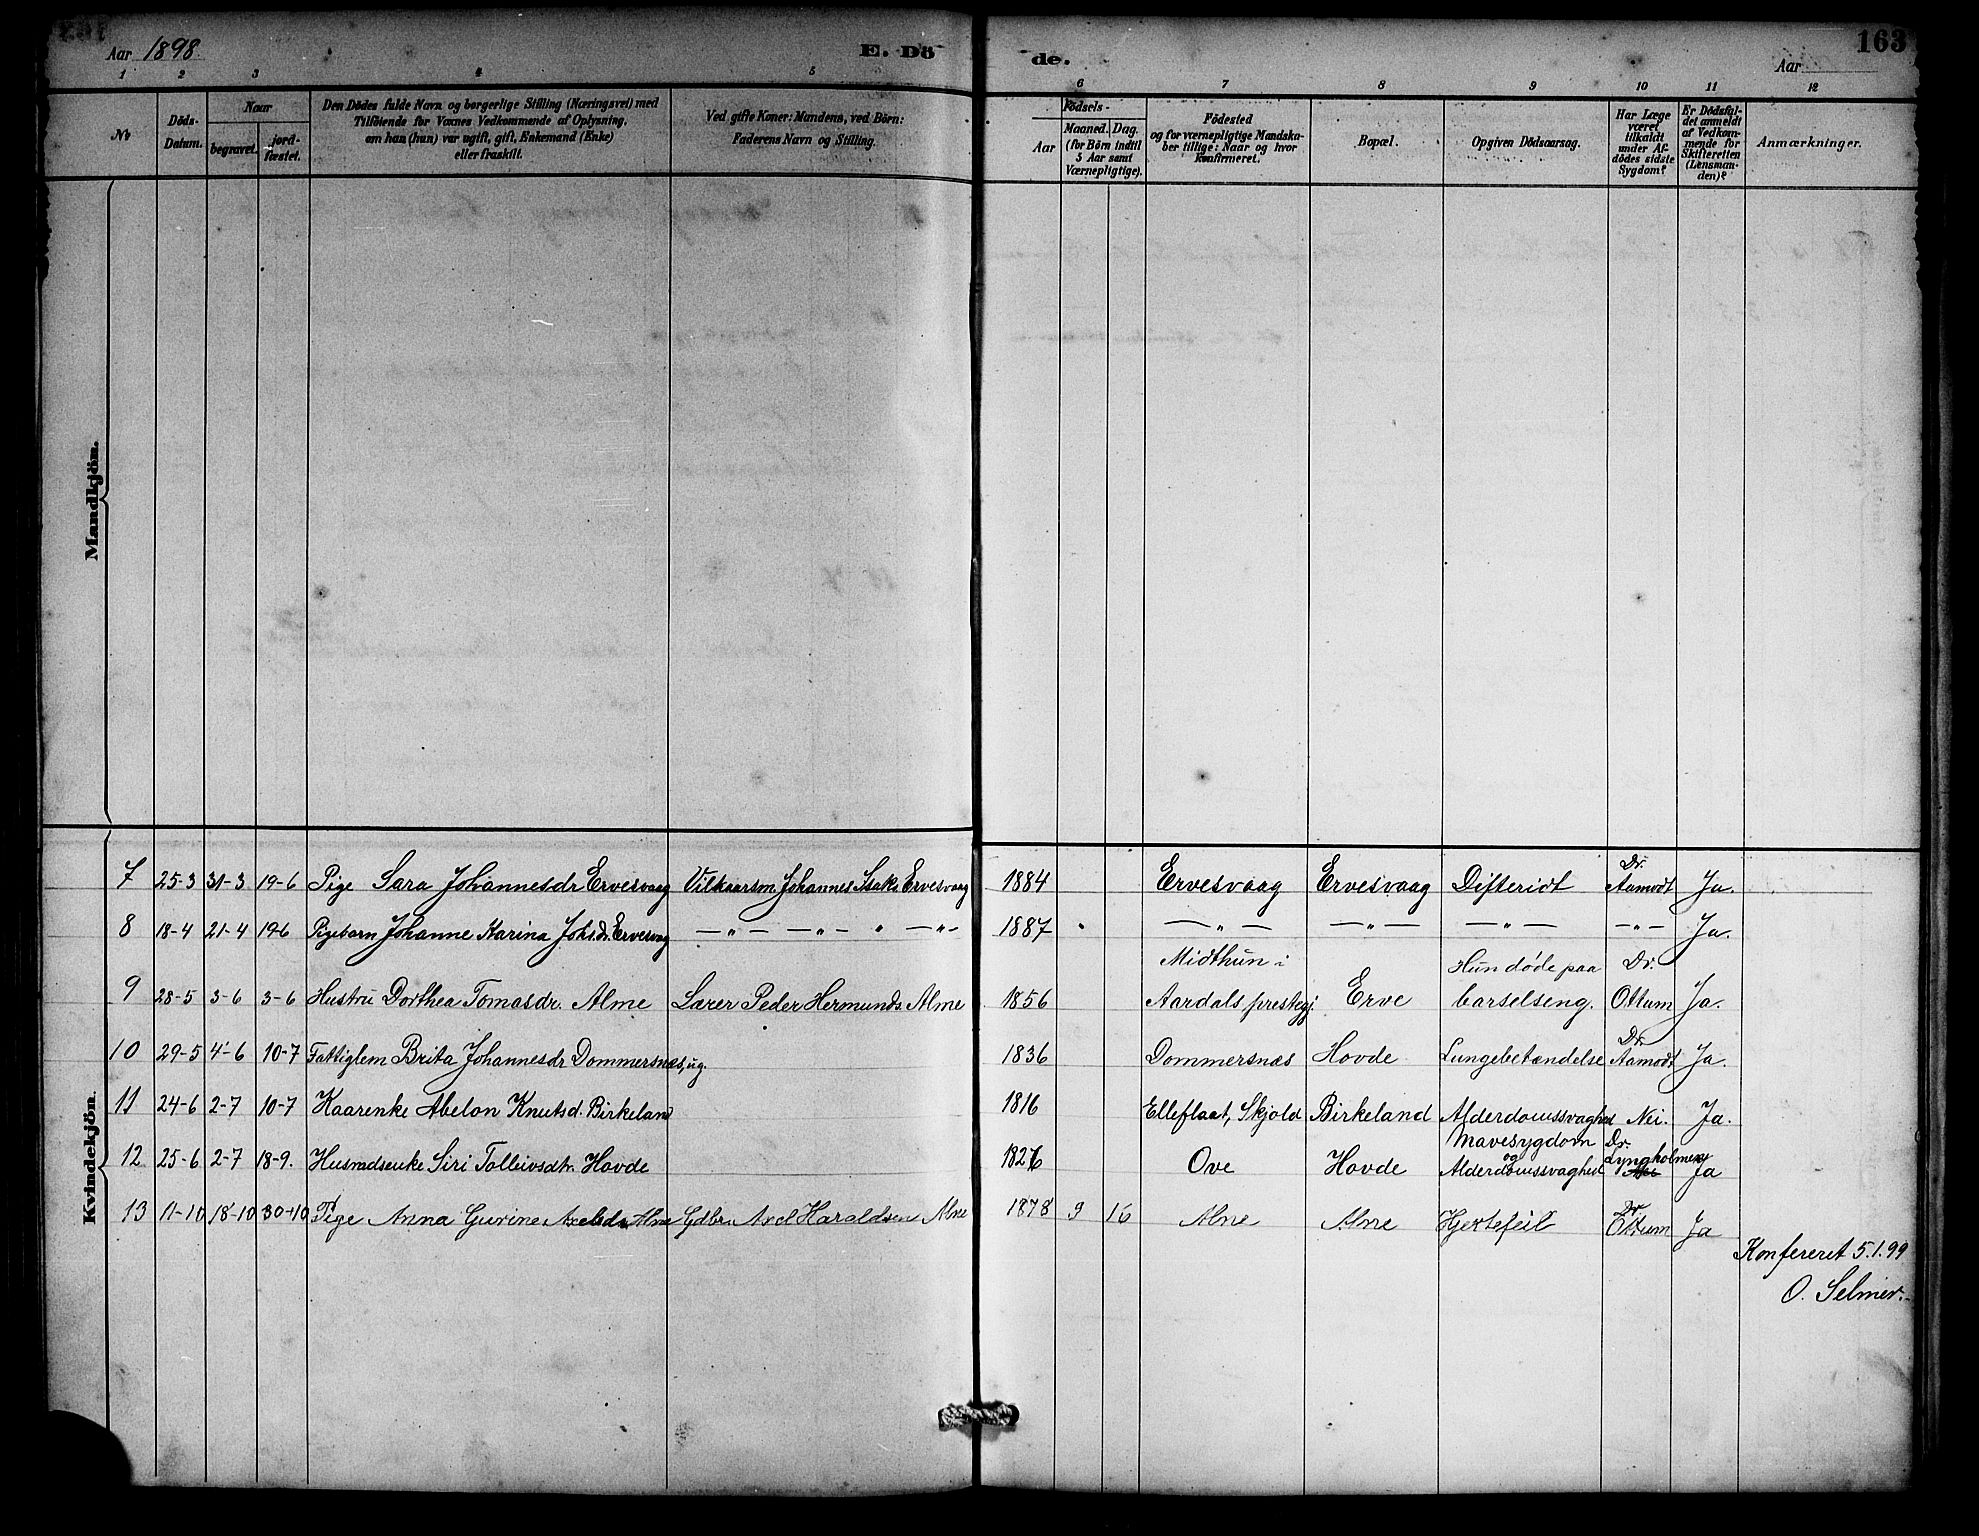 Aar 1898. E. Dö de. Aar 163
1 2 3 4 5 6 7 8 9 10 11 12
No
Döds-Datum.
Naar
begravet.
jord-fæstet.
Den Dödes fulde Navn og borgerlige Stilling (Næringsvei) med
Tilföiende for Voxnes Vedkommende af Oplysning,
om han (hun) var ugift, gift, Enkemand (Enke)
eller fraskilt.
Ved gifte Koner: Mandens, ved Börn:
Faderens Navn og Stilling.
Födsels-
Aar
Maaned. Dag.
(for Börn indtil
5 Aar samt
Værnepligtige).
Födested
og for værnepligtige Mandska-
ber tillige: Naar og hvor
konfirmeret.
Bopæl.
Opgiven Dödsaarsag.
Har Læge
været
tilkaldt
under Af-
dödes sidste
Sygdom?
Er Dödsfal-
det anmeldt
af Vedkom-
mende for
Skifteretten
(Lensman-
den)?
Anmærkninger.
Mandkjön.
Kvindekjön.
7 25-3 31-3 19-6 Pige Sara Johannesdr Ervesvaag Vilkaarsm. Johannes Isaks. Ervesvaag 1884 Ervesvaag Ervesvaag Difteridt Dr. Aamodt Ja.
8 18-4 21-4 19-6 Pigebarn Johanne Karina Johs.dr. Ervesvag — " — — " — " — " — 1887 — " — — " — — " — — " — Ja.
9 28-5 3-6 3-6 Hustru Dorthea Tomasdr. Alme Larer Peder Hermunds. Alme 1856 Midthun i Aardals prestegj. Erve Hun døde paa barselseng. Dr. Ottum Ja.
10 29-5 4-6 10-7 Fattiglem Brita Johannesdr Dommersnæs, ug. 1836 Dommersnæs Hovde Lungebetændelse Dr. Aamodt Ja.
11 24-6 2-7 10-7 Kaarenke Abelon Knutsd. Birkeland 1816 Elleflaat, Skjold Birkeland Alderdomssvaghed Nei. Ja.
12 25-6 2-7 18-9. Husmdsenke Siri Tolleivsdtr. Hovde 1826 Ove Hovde Mavesygdom og Alderdomssvaghed Dr. Lyngholmen Ja
13 11-10 18-10 30-10 Pige Anna Gurine Axelsdr Alme Gdbr. Axel Haraldsen Alme 1878 9 16 Alme Alme Hjertefeil Dr. Ottum Ja
Konfereret 5.1.99
O. Selmer.